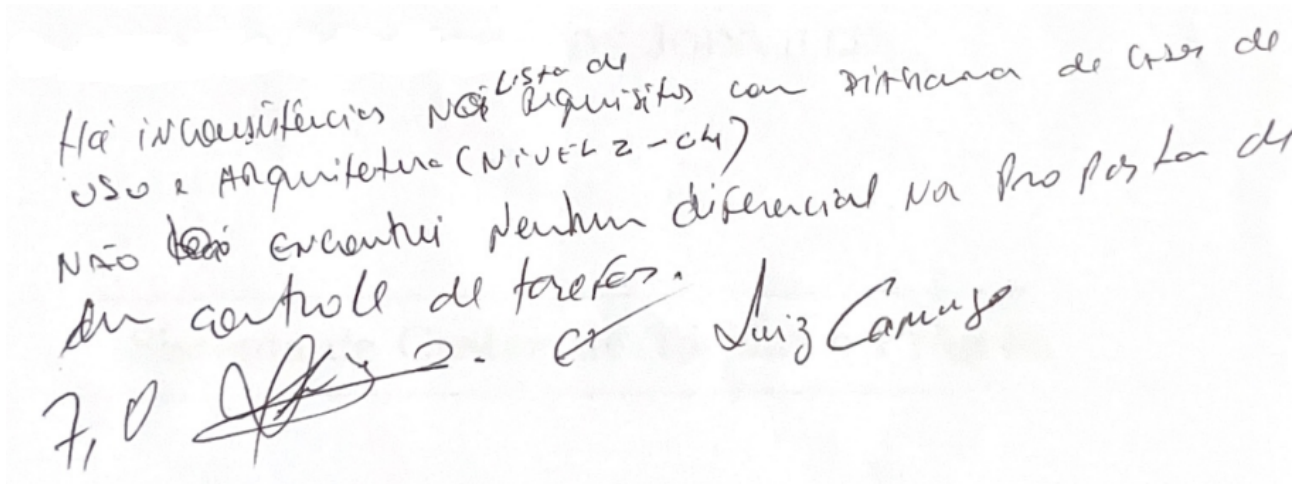 Há inconsistências Na Lista de Requisitos com Diagrama de Casos de
USO e ARquitetura (NÍVEL 2 - C4)
NÃO Encontrei Nenhum diferencial Na Proposta de
em controle de tarefas.
7,0 Luiz Camargo